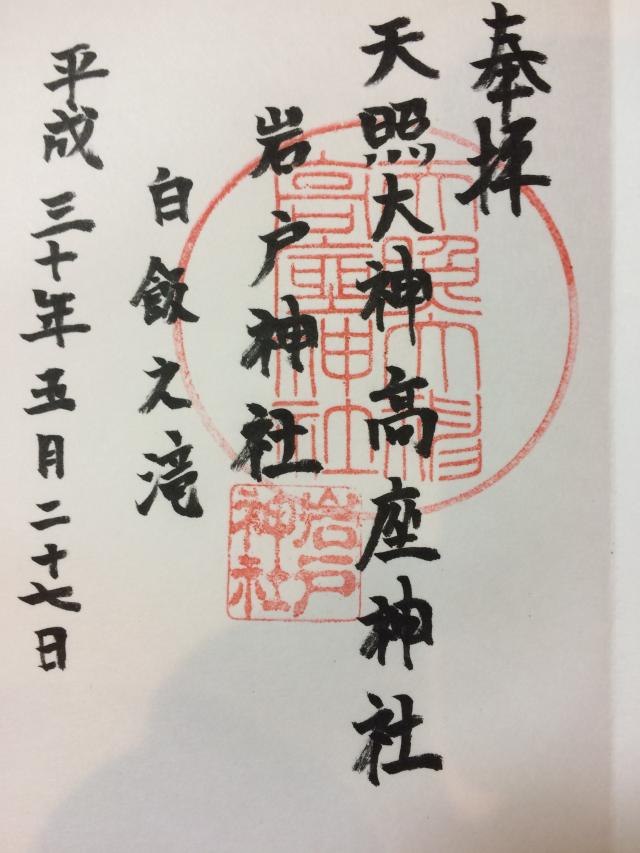 奉拝
天照大神高座神社
岩戸神社
白飯之滝
平成三十年五月二十七日
天照大神
高座神社
岩戸
神社